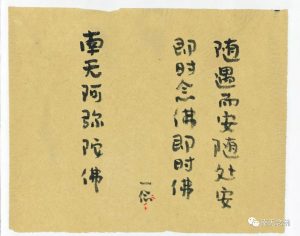 随遇而安随处安
即时念佛即时佛
南无阿弥陀佛